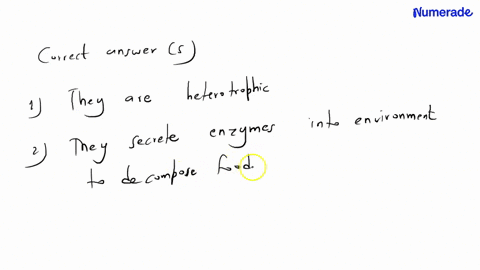 Numerade
Correct answer (s)
1) They are heterotrophic
2) They secrete enzymes into environment
to decompose food